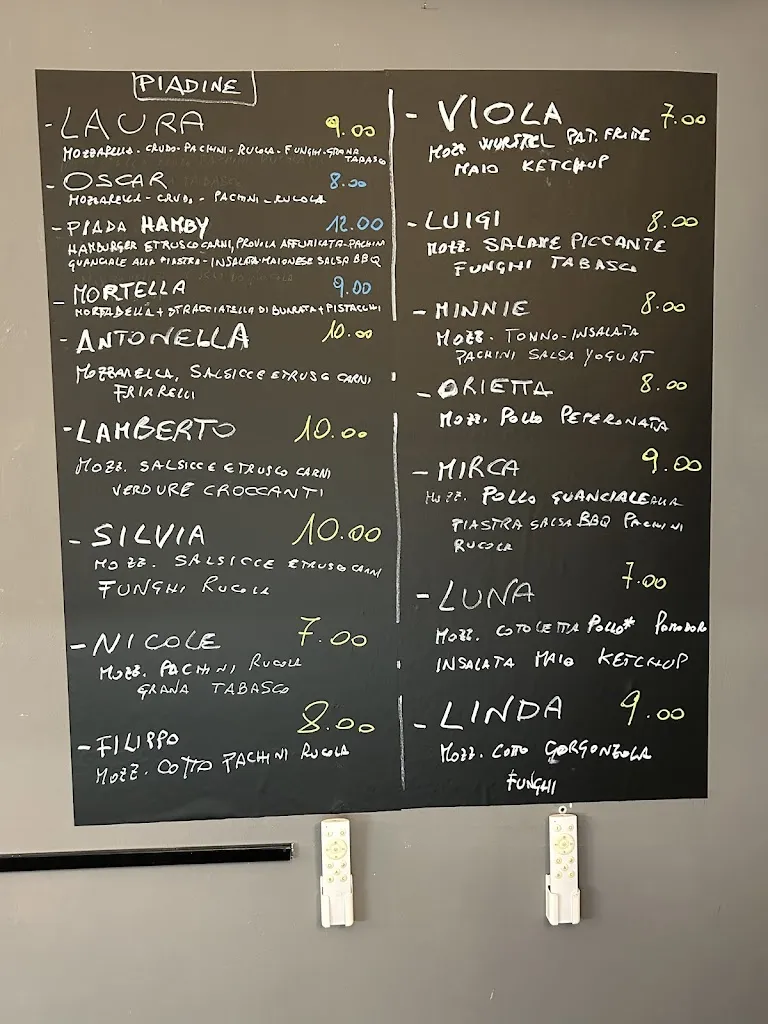 PIADINE
- LAURA 9.00
MOZZARELLA - CRUDO - PACHINI - RUCOLA - FUNGHI - GRANA
TABASCO
- OSCAR 8.00
MOZZARELLA - CRUDO - PACHINI - RUCOLA
- PIADA HAMBY 12.00
HAMBURGER ETRUSCO CARNI, PROVOLA AFFUMICATA - PACHINI
GUANCIALE ALLA PIASTRA - INSALATA - MAIONESE SALSA BBQ
- MORTELLA 9.00
MORTADELLA + STRACCIATELLA DI BURRATA + PISTACCHI
- ANTONELLA 10.00
MOZZARELLA, SALSICCE ETRUSCO CARNI
FRIARELLI
- LAMBERTO 10.00
MOZZ. SALSICCE ETRUSCO CARNI
VERDURE CROCCANTI
- SILVIA 10.00
MOZZ. SALSICCE ETRUSCO CARNI
FUNGHI RUCOLA
- NICOLE 7.00
MOZZ. PACHINI RUCOLA
GRANA TABASCO
- FILIPPO 8.00
MOZZ. COTTO PACHINI RUCOLA
- VIOLA 7.00
MOZZ WURSTEL PAT. FRITE
MAIO KETCHUP
- LUIGI 8.00
MOZZ. SALAME PICCANTE
FUNGHI TABASCO
- MINNIE 8.00
MOZZ. TONNO - INSALATA
PACHINI SALSA YOGURT
- ORIETTA 8.00
MOZZ. POLLO PEPERONATA
- MIRCA 9.00
MOZZ. POLLO GUANCIALE ALLA
PIASTRA SALSA BBQ PACHINI
RUCOLA
- LUNA 7.00
MOZZ. COTOLETTA POLLO* POMODORO
INSALATA MAIO KETCHUP
- LINDA 9.00
MOZZ. COTTO GORGONZOLA
FUNGHI